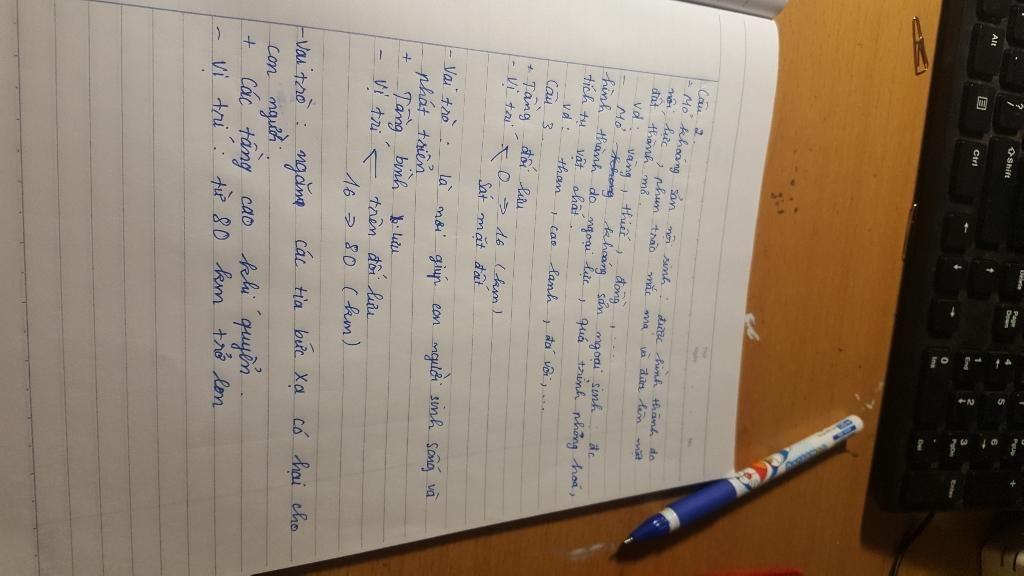 Câu 2
- Mỏ khoáng sản nội sinh: được hình thành do
nội lực, phun trào mắc ma và đưa lên mặt
đất thành mỏ.
Vd: vàng, thiếc, đồng,....
- Mỏ khoáng sản ngoại sinh: đc
hình thành do ngoại lực, quá trình phong hoá,
tích tụ vật chất
vd: than, cao lanh, đá vôi,....
Câu 3
+ Tầng đối lưu
- Vị trí 0 => 16 (km)
Sát mặt đất
- Vai trò: là nơi giúp con người sinh sống và
phát triển
+ Tầng bình lưu
- Vị trí trên đối lưu
16 => 80 (km)
- Vai trò: ngăn các tia bức xạ có hại cho
con người.
+ Các tầng cao khí quyển.
- Vị trí: từ 80 km trở lên
Alt
Ctrl
Shift
Page
Down
0
Ins
1
End
2
3
PgDn
4
5
6
+